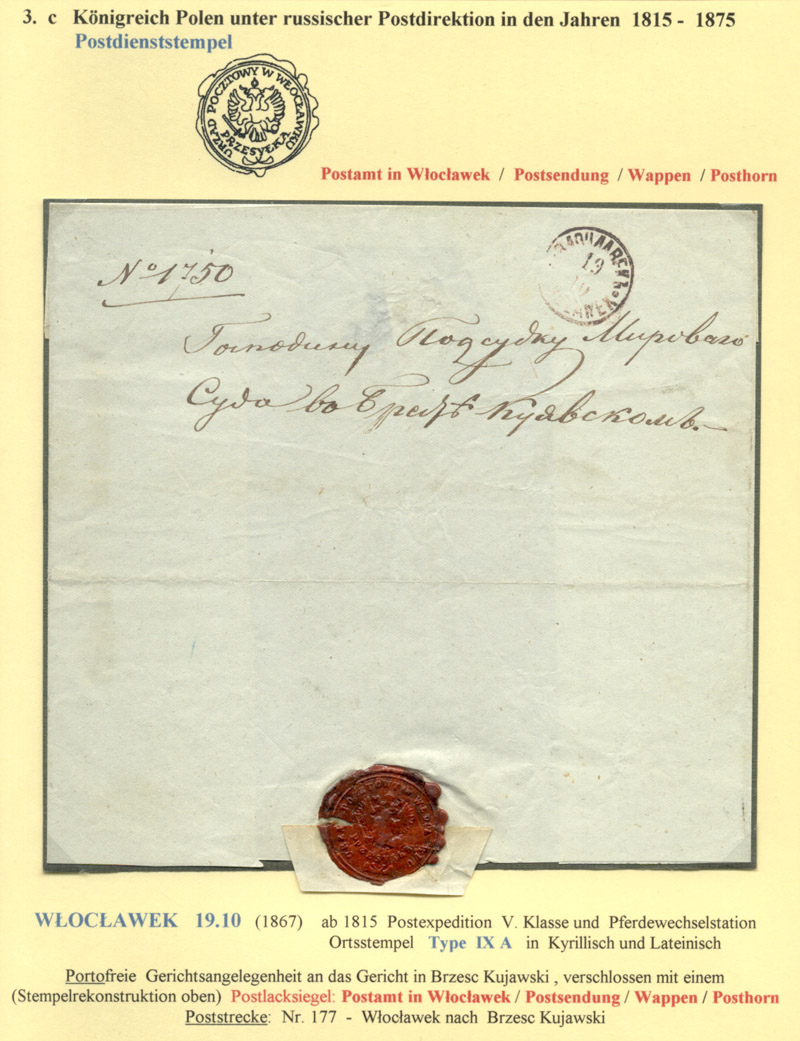 3. c Königreich Polen unter russischer Postdirektion in den Jahren 1815 - 1875
Postdienststempel
URZĄD POCZTOWY W WŁOCŁAWKU
PRZESYŁKA
Postamt in Włocławek / Postsendung / Wappen / Posthorn
19
10
No 1750
Господину Подсудку Мироваго
Суда во Брестѣ Куявскомъ.
WŁOCŁAWEK 19.10 (1867) ab 1815 Postexpedition V. Klasse und Pferdewechselstation
Ortsstempel Type IX A in Kyrillisch und Lateinisch
Portofreie Gerichtsangelegenheit an das Gericht in Brzesc Kujawski , verschlossen mit einem
(Stempelrekonstruktion oben) Postlacksiegel: Postamt in Włocławek / Postsendung / Wappen / Posthorn
Poststrecke: Nr. 177 - Włocławek nach Brzesc Kujawski